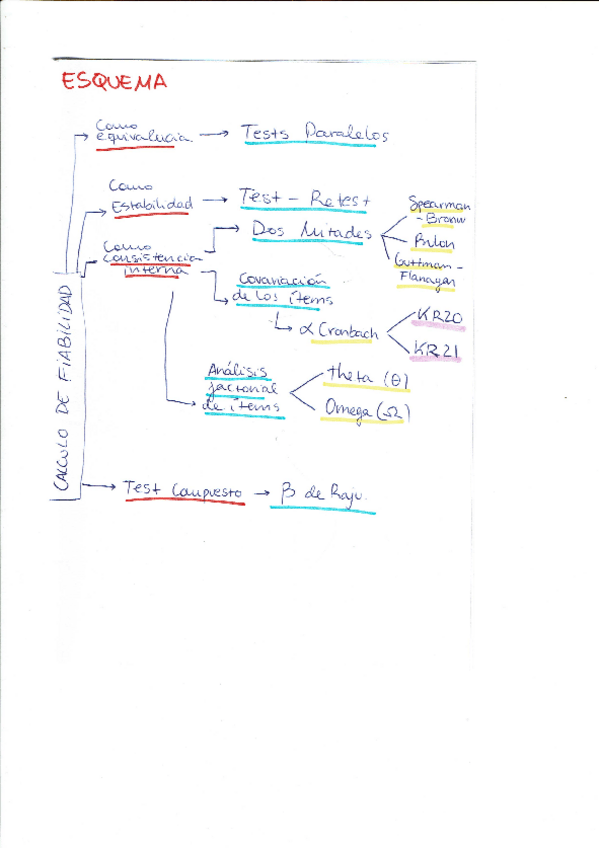 ESQUEMA
Como
equivalucia → Tests Paralelos
Como
Estabilidad → Test - Retest
Dos Mitades
Spearman
- Bronw
Rulon
Guttman -
Flanagan
Como
consistencia
interna
Covariación
de los ítems
α Cronbach
KR20
KR21
Análisis
factorial
de ítems
theta (θ)
Omega (Ω)
CALCULO DE FIABILIDAD
Test Compuesto → β de Raju.